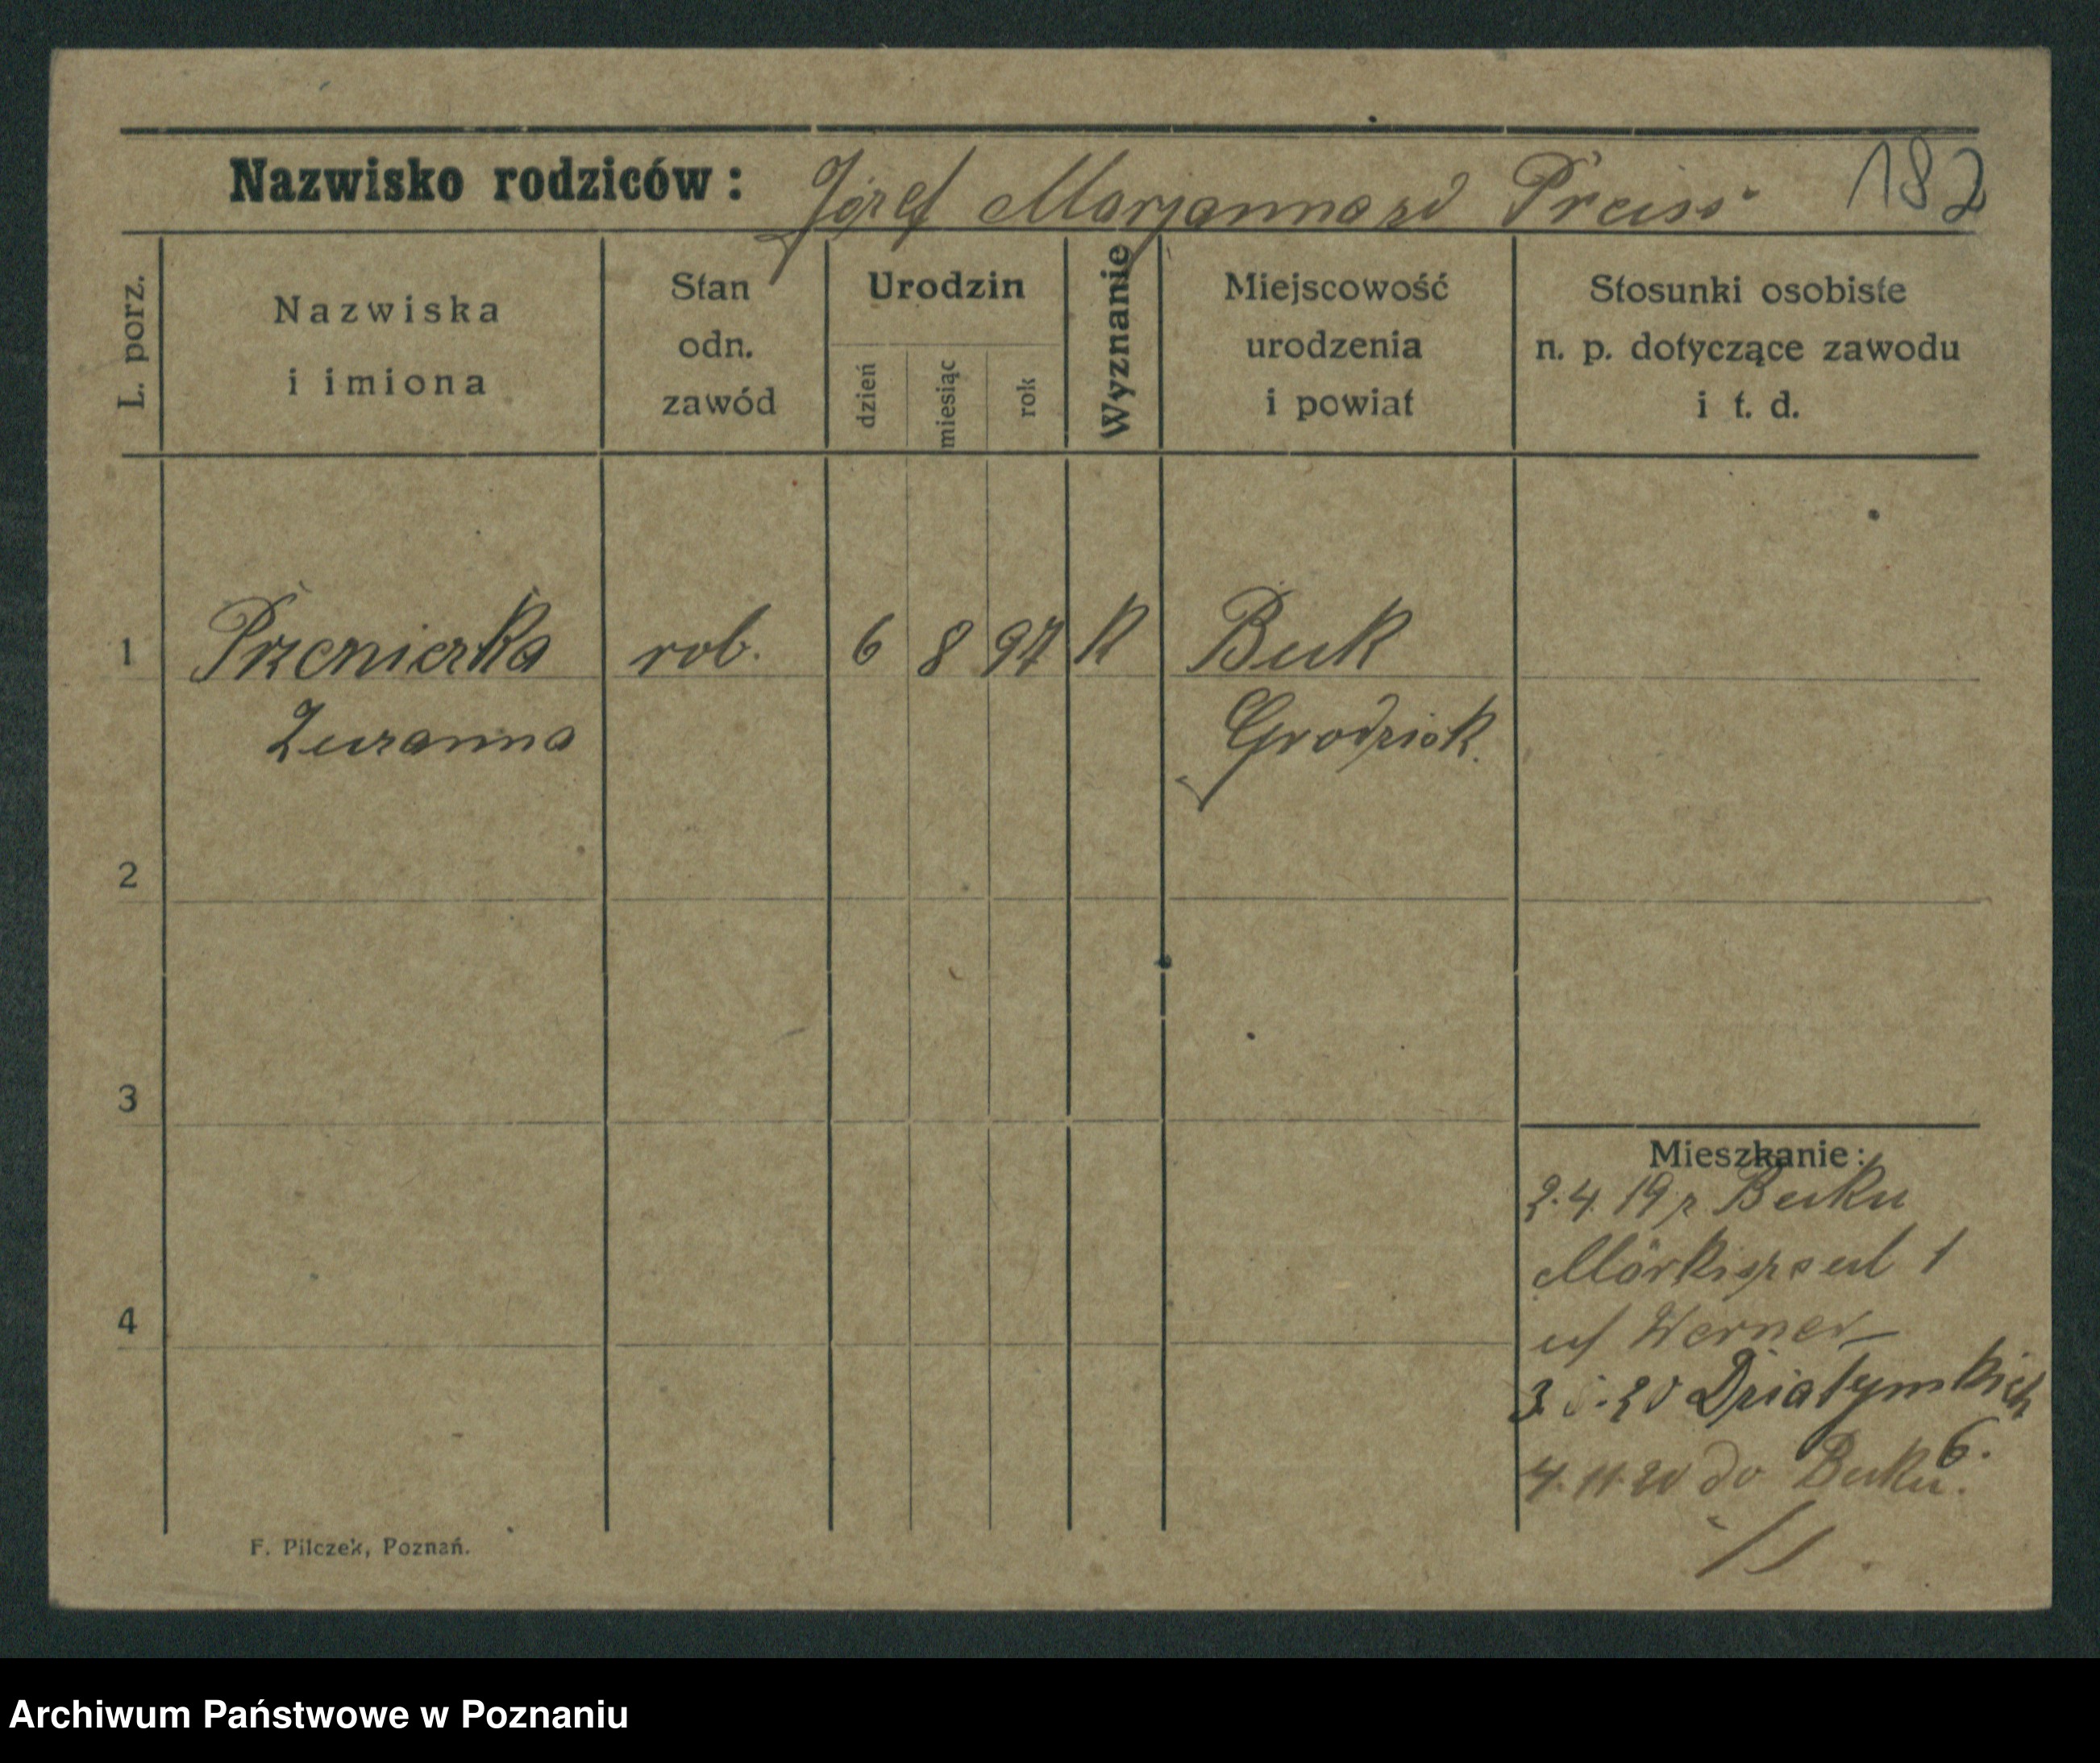 Nazwisko rodziców: Józef Marjanna zd Preiss 182
L. porz.
Nazwiska
i imiona
Stan
odn.
zawód
Urodzin
dzień
miesiąc
rok
Wyznanie
Miejscowość
urodzenia
i powiat
Stosunki osobiste
n. p. dotyczące zawodu
i t. d.
1 rob. 6 8 97 K Buk
Zuzanna Grodzisk.
2
3
4
Mieszkanie:
2.4.19 z Buku
ul 1
u/ Werner
20 Działyńskich
6.
4.11.20 do Buku.
F. Pilczek, Poznań.
Archiwum Państwowe w Poznaniu